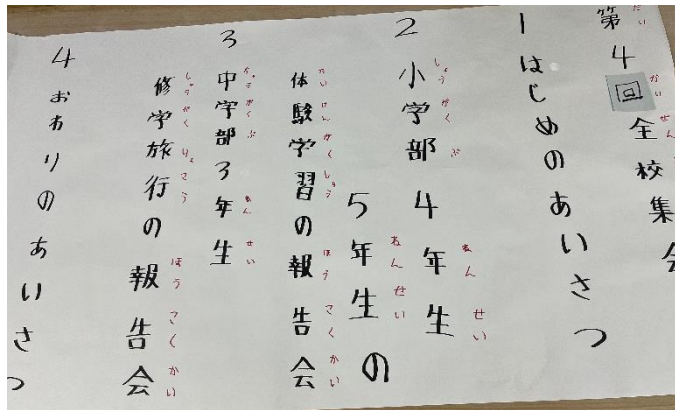 第4回全校集会
1 はじめのあいさつ
2 小学部 4年生
5年生の
体験学習の報告会
3 中学部3年生
修学旅行の報告会
4 おわりのあいさつ